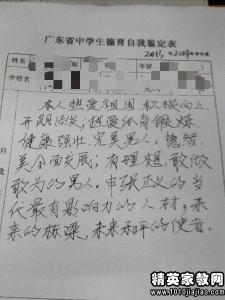 广东省中学生德育自我鉴定表
姓名
年级
学校名
本人热爱祖国 积极向上
开朗活泼,热爱体育锻炼
健康强壮,完美男人。德智
美全面发展,有理想敢做
敢为的男人。申张正义的当
代最有影响力的人材,未
来的栋梁,未来和平的使者。
自
我
精英家教网
www.1010jiajiao.com